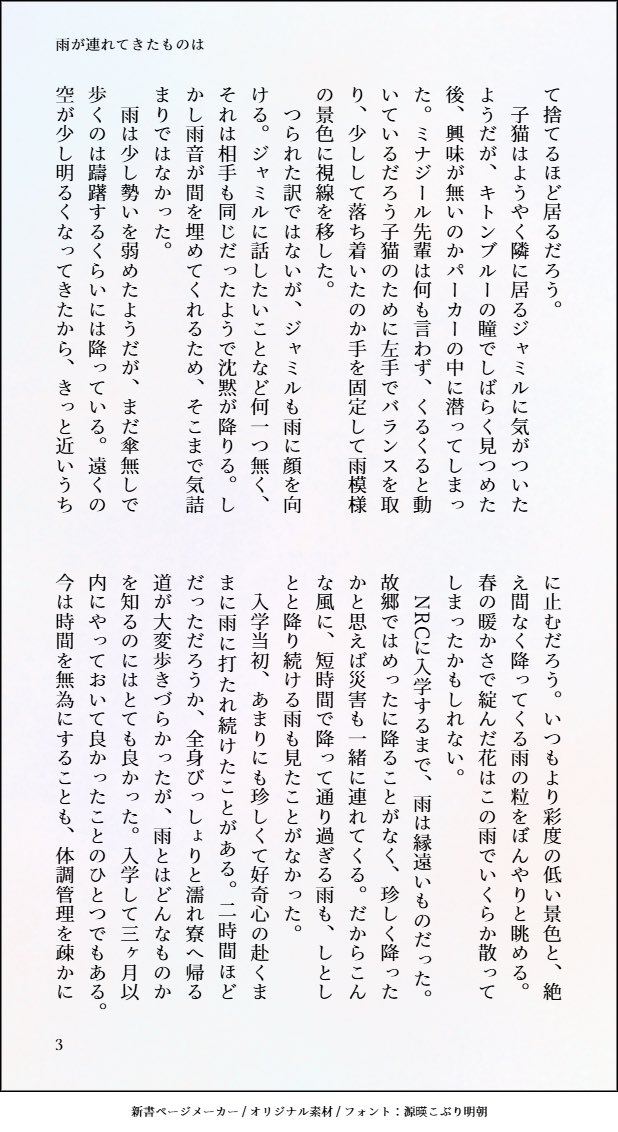 雨が連れてきたものは
て捨てるほど居るだろう。
　子猫はようやく隣に居るジャミルに気がついた
ようだが、キトンブルーの瞳でしばらく見つめた
後、興味が無いのかパーカーの中に潜ってしまっ
た。ミナジール先輩は何も言わず、くるくると動
いているだろう子猫のために左手でバランスを取
り、少しして落ち着いたのか手を固定して雨模様
の景色に視線を移した。
　つられた訳ではないが、ジャミルも雨に顔を向
ける。ジャミルに話したいことなど何一つ無く、
それは相手も同じだったようで沈黙が降りる。し
かし雨音が間を埋めてくれるため、そこまで気詰
まりではなかった。
　雨は少し勢いを弱めたようだが、まだ傘無しで
歩くのは躊躇するくらいには降っている。遠くの
空が少し明るくなってきたから、きっと近いうち
に止むだろう。いつもより彩度の低い景色と、絶
え間なく降ってくる雨の粒をぼんやりと眺める。
春の暖かさで綻んだ花はこの雨でいくらか散って
しまったかもしれない。
　NRCに入学するまで、雨は縁遠いものだった。
故郷ではめったに降ることがなく、珍しく降った
かと思えば災害も一緒に連れてくる。だからこん
な風に、短時間で降って通り過ぎる雨も、しとし
とと降り続ける雨も見たことがなかった。
　入学当初、あまりにも珍しくて好奇心の赴くま
まに雨に打たれ続けたことがある。二時間ほど
だっただろうか、全身びっしょりと濡れ寮へ帰る
道が大変歩きづらかったが、雨とはどんなものか
を知るのにはとても良かった。入学して三ヶ月以
内にやっておいて良かったことのひとつでもある。
今は時間を無為にすることも、体調管理を疎かに
3
新書ページメーカー / オリジナル素材 / フォント：源暎こぶり明朝